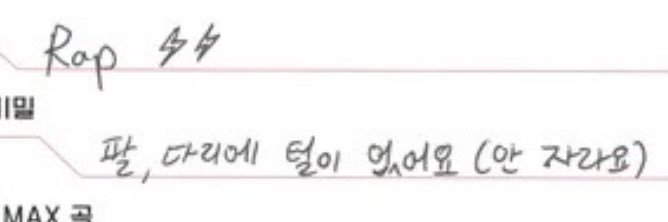 Rap ⚡⚡
비밀
팔, 다리에 털이 없어요 (안 자라요)
MAX 곡